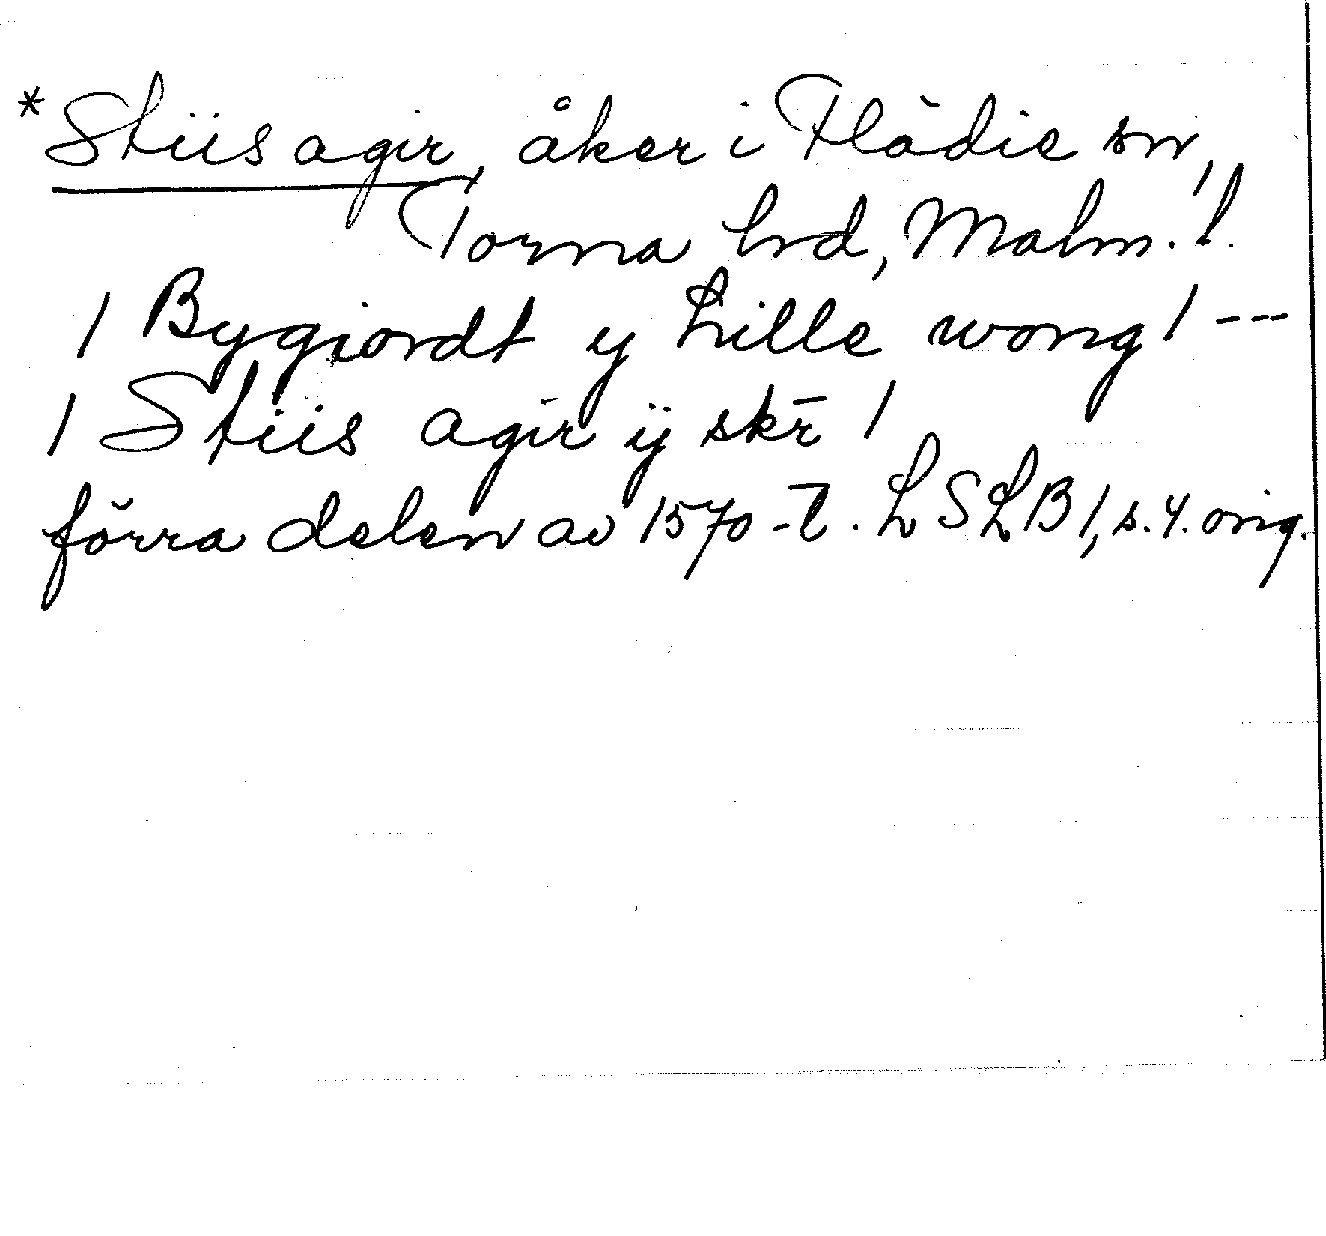 *Stiis agir, åker i Flädie sn,
Torna hrd, Malm. l.
/ Bygiordt y Lille wong / ---
/ Stiis agir ij skr̄ /
förra delen av 1570-t. LSLB 1, s. 4. orig.